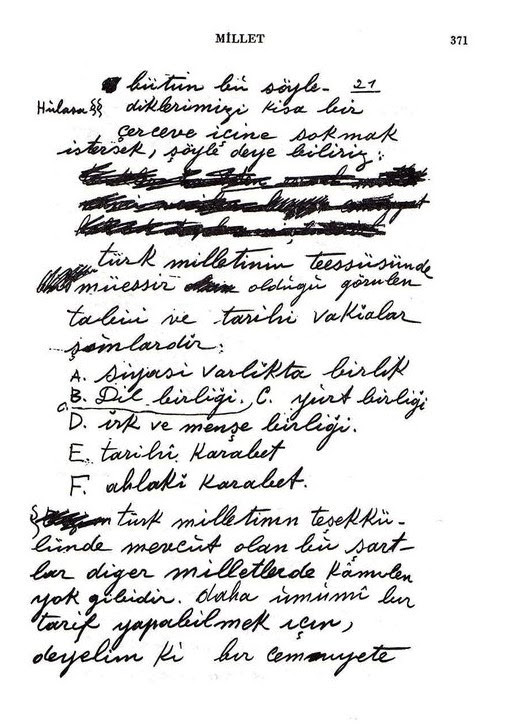 MİLLET 371
bütün bu söyle- 21
Hülasa §§ diklerimizi kısa bir
çerceve içine sokmak
istersek, şöyle deye biliriz:
türk milletinin teessüsünde
müessir olduğu görülen
tabii ve tarihi vakialar
şunlardır:
A. siyasi varlıkta birlik
B. Dil birliği. C. yurt birliği
D. ırk ve menşe birliği.
E. tarihî karabet
F. ahlakî karabet.
§ türk milletinin teşekkü-
lünde mevcut olan bu şart-
lar diger milletlerde kâmilen
yok gibidir. Daha ümümî bir
tarif yapabilmek için,
deyelim ki bir cemiyete